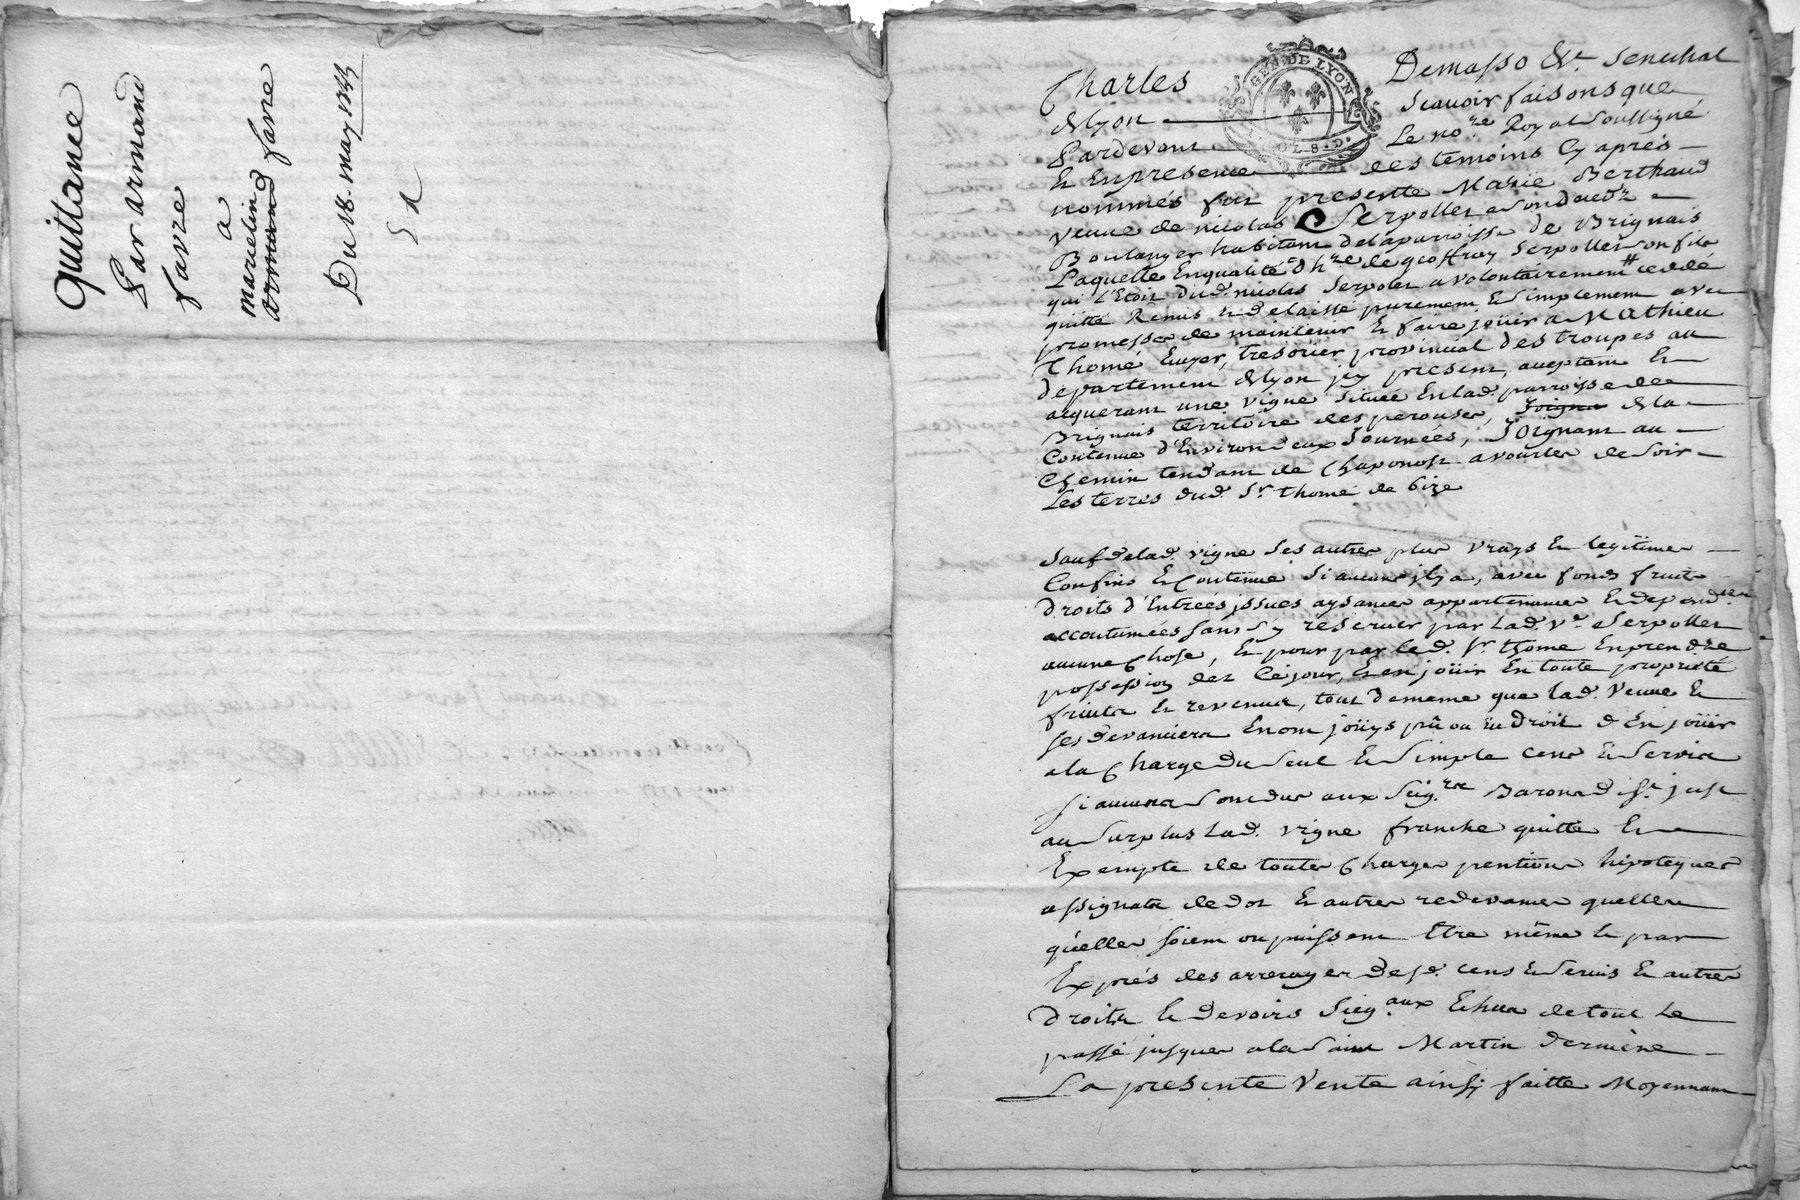 Quittance
Par armand
favre
a
marcelin favre
armand
Du 18. may
GEN. DE LYON
Charles Demasso &r. Senechal
de lyon Scavoir faisons que
Pardevant Le nore. Royal soussigné
Et Enpresence des temoins Cy aprés
nommés fut presente Marie Berthaud
veuve de nicolas Serpollet
Boulanger habitant delaparroisse de Brignais
Laquelle Enqualité d'hre. de geoffray Serpollet son fils
qui l'Etoit dud. nicolas Serpolet a volontairement # ceddé
quitté Remis et delaissé purement & simplement avec
promesse de maintenir Et faire joüir a Mathieu
Thomé Ecuyer, tresorier provincial des troupes au
departement de lyon icy present, acceptant Et
acquerant une vigne située En lad. parroisse de
Brignais territoire des perouses, Joigna de la
Contenue d'Environ deux Journées, Joignant au
Chemin tendant de Chaponost a vourles de soir
Les terres dud. Sr. thomé de bize
Sauf de lad. vigne ses autres plus vrays Et legitimes
Confins Et Contenue si aucuns il y a, avec fonds fruits
droits d'Entrées issues aysances appartenances Et dependces.
accoutumées sans s'y réserver par lad. ve. Serpollet
aucune Chose, Et pour par led. Sr. thomé En prendre
possession dez Cejour, Et en joüir En toute proprieté
fruits Et revenus, tout de meme que lad. veuve Et
ses devanciers En ont joüys pû ou Eu droit d'En joüir
a la Charge du seul & simple cens & servis
si aucuns sont dus aux Seigrs. Barons d St. just
au surplus lad. vigne franche quitte Et
Exempte de toutes Charges pentions hipoteques
assignats de dot Et autres redevances quelles
qu'elles soient ou puissent Etre même Et par
Exprés des arrerages desd. cens & servis Et autres
droits Et devoirs Seigaux. Echus de tout Le
passé jusques a la saint Martin derniere
La presente Vente ainsy faitte Moyennant